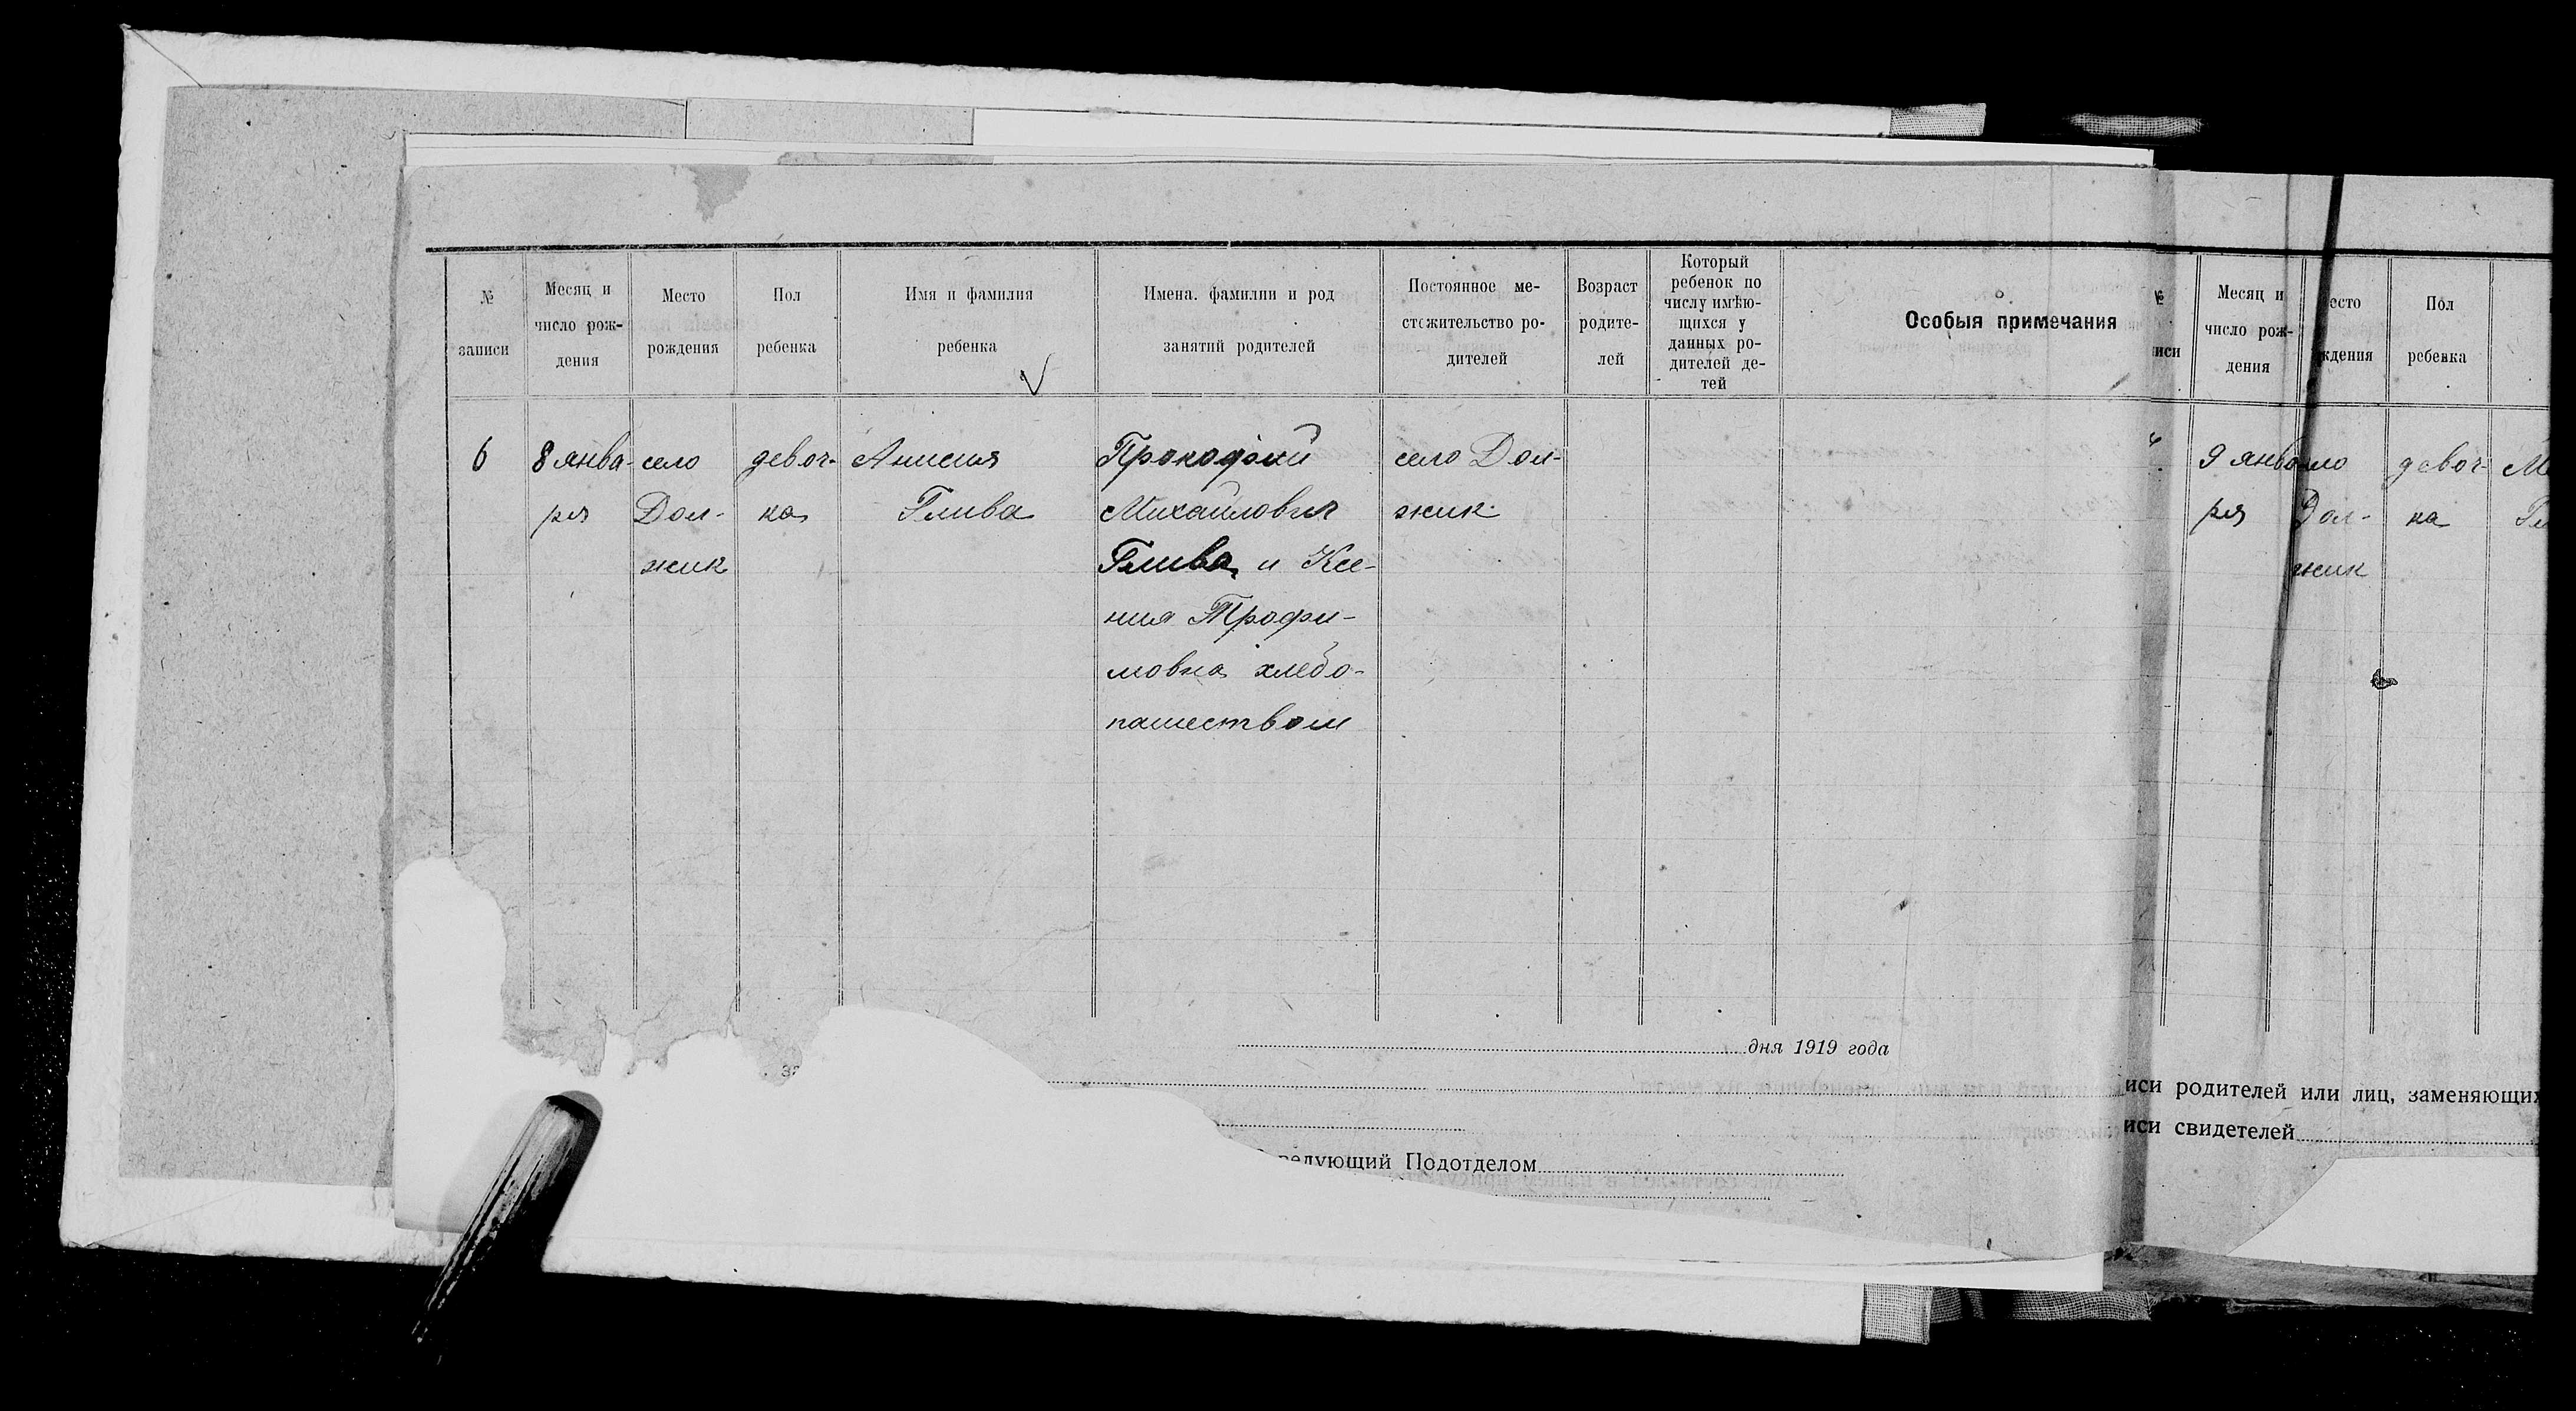 №
записи
Месяц и
число рож-
дения
Место
рождения
Пол
ребенка
Имя и фамилия
ребенка
Имена. фамилии и род
занятий родителей
Постоянное ме-
стожительство ро-
дителей
Возраст
родите-
лей
Который
ребенок по
числу имѣю-
щихся у
данных ро-
дителей де-
тей
Особыя примечания
6
8 янва-
ря
село
Дол-
жик
девоч-
ка
Анисия
Глива
Прокофий
Михайлович
Глива и Ксе-
ния Трофи-
мовна хлебо-
пашеством
село Дол-
жик
дня 1919 года
ведующий Подотделом
№
иси
Месяц и
число рож-
дения
есто
ждения
Пол
ребенка
9 янва
ря
ло
Дол-
жик
девоч-
ка
иси родителей или лиц, заменяющих
иси свидетелей